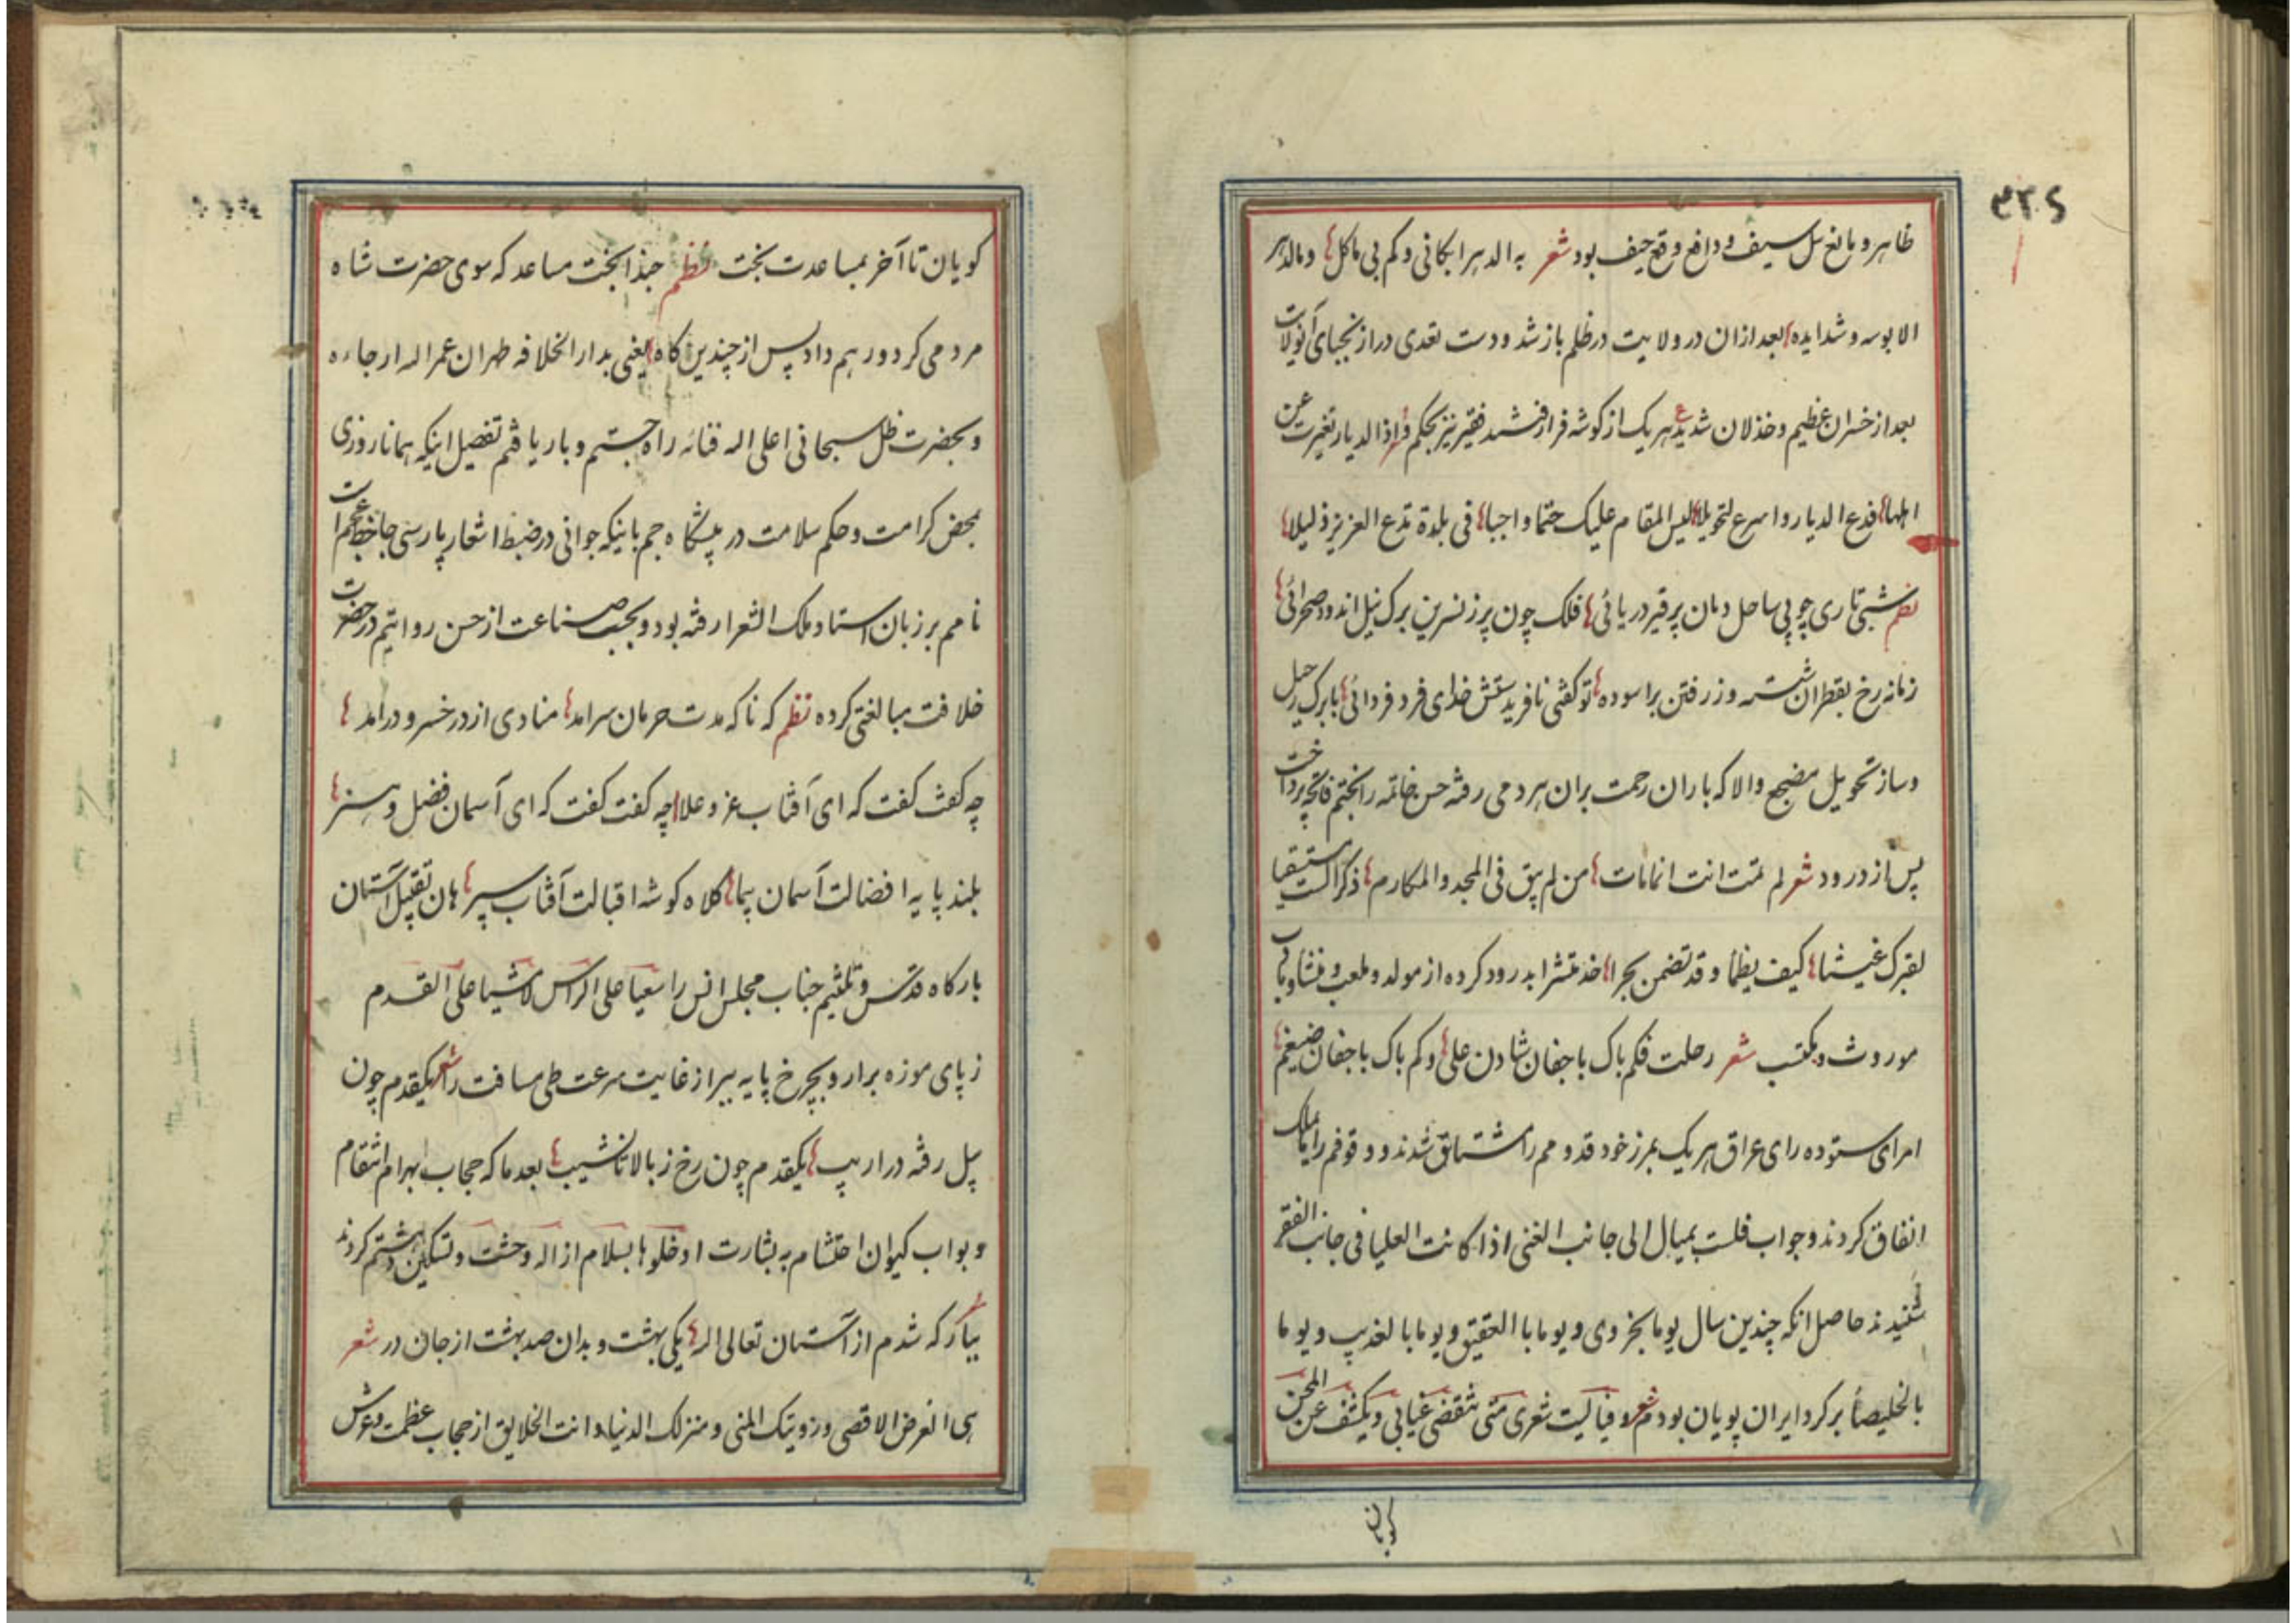 ۴۲۶
ظاهر و مانع سل سیف و دافع وقع حیف بود شعر به الدهر ابکانی وکم بی ماکل و مالدهر
الا بوسه و شدایده بعد ازان در ولایت در ظلم باز شد و دست تعدی دراز نجبای آنولات
بعد از خسران عظیم و خذلان شدید هر یک از کوشه فرا رفتند فقیر نیز بحکم و اذا الدیار تغیرت عن
اهلها فدع الدیار و اسرع لتحویلا لیس المقام علیک حتما واجبا فی بلدة تدع العزیز ذلیلا
نظم شبی تاری چو بی ساحل دمان پر قیر دریائی فلک چون پر ز نسرین برک نیل اندود صحرائی
زمانه رخ بقطران شسته وز رفتن براسوده تو کفتی نافریدستش خدای فرد فردائی با برک رحیل
و ساز تحویل مضجع والا که باران رحمت بران هر دمی رفته حسن خاتمه را بختم فاتحه پرداخت
پس از درود شعر لم تمت انت انما مات من لم یبق فی المجد والمکارم ذکرا لست مستسقیا
لقبرک غیثا کیف یظما و قد تضمن بحرا بدرود کرده از مولد و ملعب و منشا و باب
موروث و مکتسب شعر رحلت فکم باک باجفان شادن علی وکم باک باجفان ضیغم
امرای ستوده رای عراق هر یک بمرز خود قدومم را مشتاق شدند و وقوفم را باملاک
انفاق کردند و جواب فلست بمیال الی جانب الغنی اذا کانت العلیا فی جانب الفقر
شنیدند حاصل انکه چندین سال یوما بخزوی و یوما با العقیق و یوما با لعذیب و یوما
بالخلیصاء بر کرد ایران پویان بودم شعر و فیالیت شعری متی تنقضی غیابی ویکشف عن المحن
کویان
کویان تا آخر بمساعدت بخت نظم حبذا بخت مساعد که سوی حضرت شاه
مردمی کرد و رهم داد پس از چندین کاه یعنی بدار الخلافه طهران عمر اله ارجاءه
و بحضرت ظل سبحانی اعلی اله فنائه راه جستم و بار یافتم تفصیل اینکه همانا روزی
بمحض کرامت و حکم سلامت در پیشکاه جم باینکه جوانی در ضبط اشعار پارسی
نامم بر زبان استاد ملک الشعرا رفته بود و بحسب صناعت از حسن روایتم در حضرت
خلافت مبالغتی کرده نظم که ناکه مدت حرمان سرامد منادی از در خسرو درامد
چه کفت کفت که ای آفتاب عز و علا چه کفت کفت که ای آسمان فضل و هنر
بلند پایه افضالت آسمان پیما کلاه کوشه اقبالت آفتاب سپر هان تقبیل آستان
بارکاه قدس و تلثیم جناب مجلس انس را سعیا علی الراس لا مشیا علی القدم
ز پای موزه برار و بچرخ پایه بپر از غایت سرعت طی مسافت را شعر یکقدم چون
پیل رفته در اریب یکقدم چون رخ ز بالا تا نشیب بعد ما که حجاب بهرام انتقام
و بواب کیوان احتشام به بشارت ادخلوها بسلام ازاله وحشت و تسکین دهشتم کردند
که شدم از آستان تعالی اله یکی بهشت و بدان صد بهشت از جان در شعر
هی الغرض الاقصی و رؤیتک المنی و منزلک الدنیا و انت الخلایق از حجاب عظمت و عرش